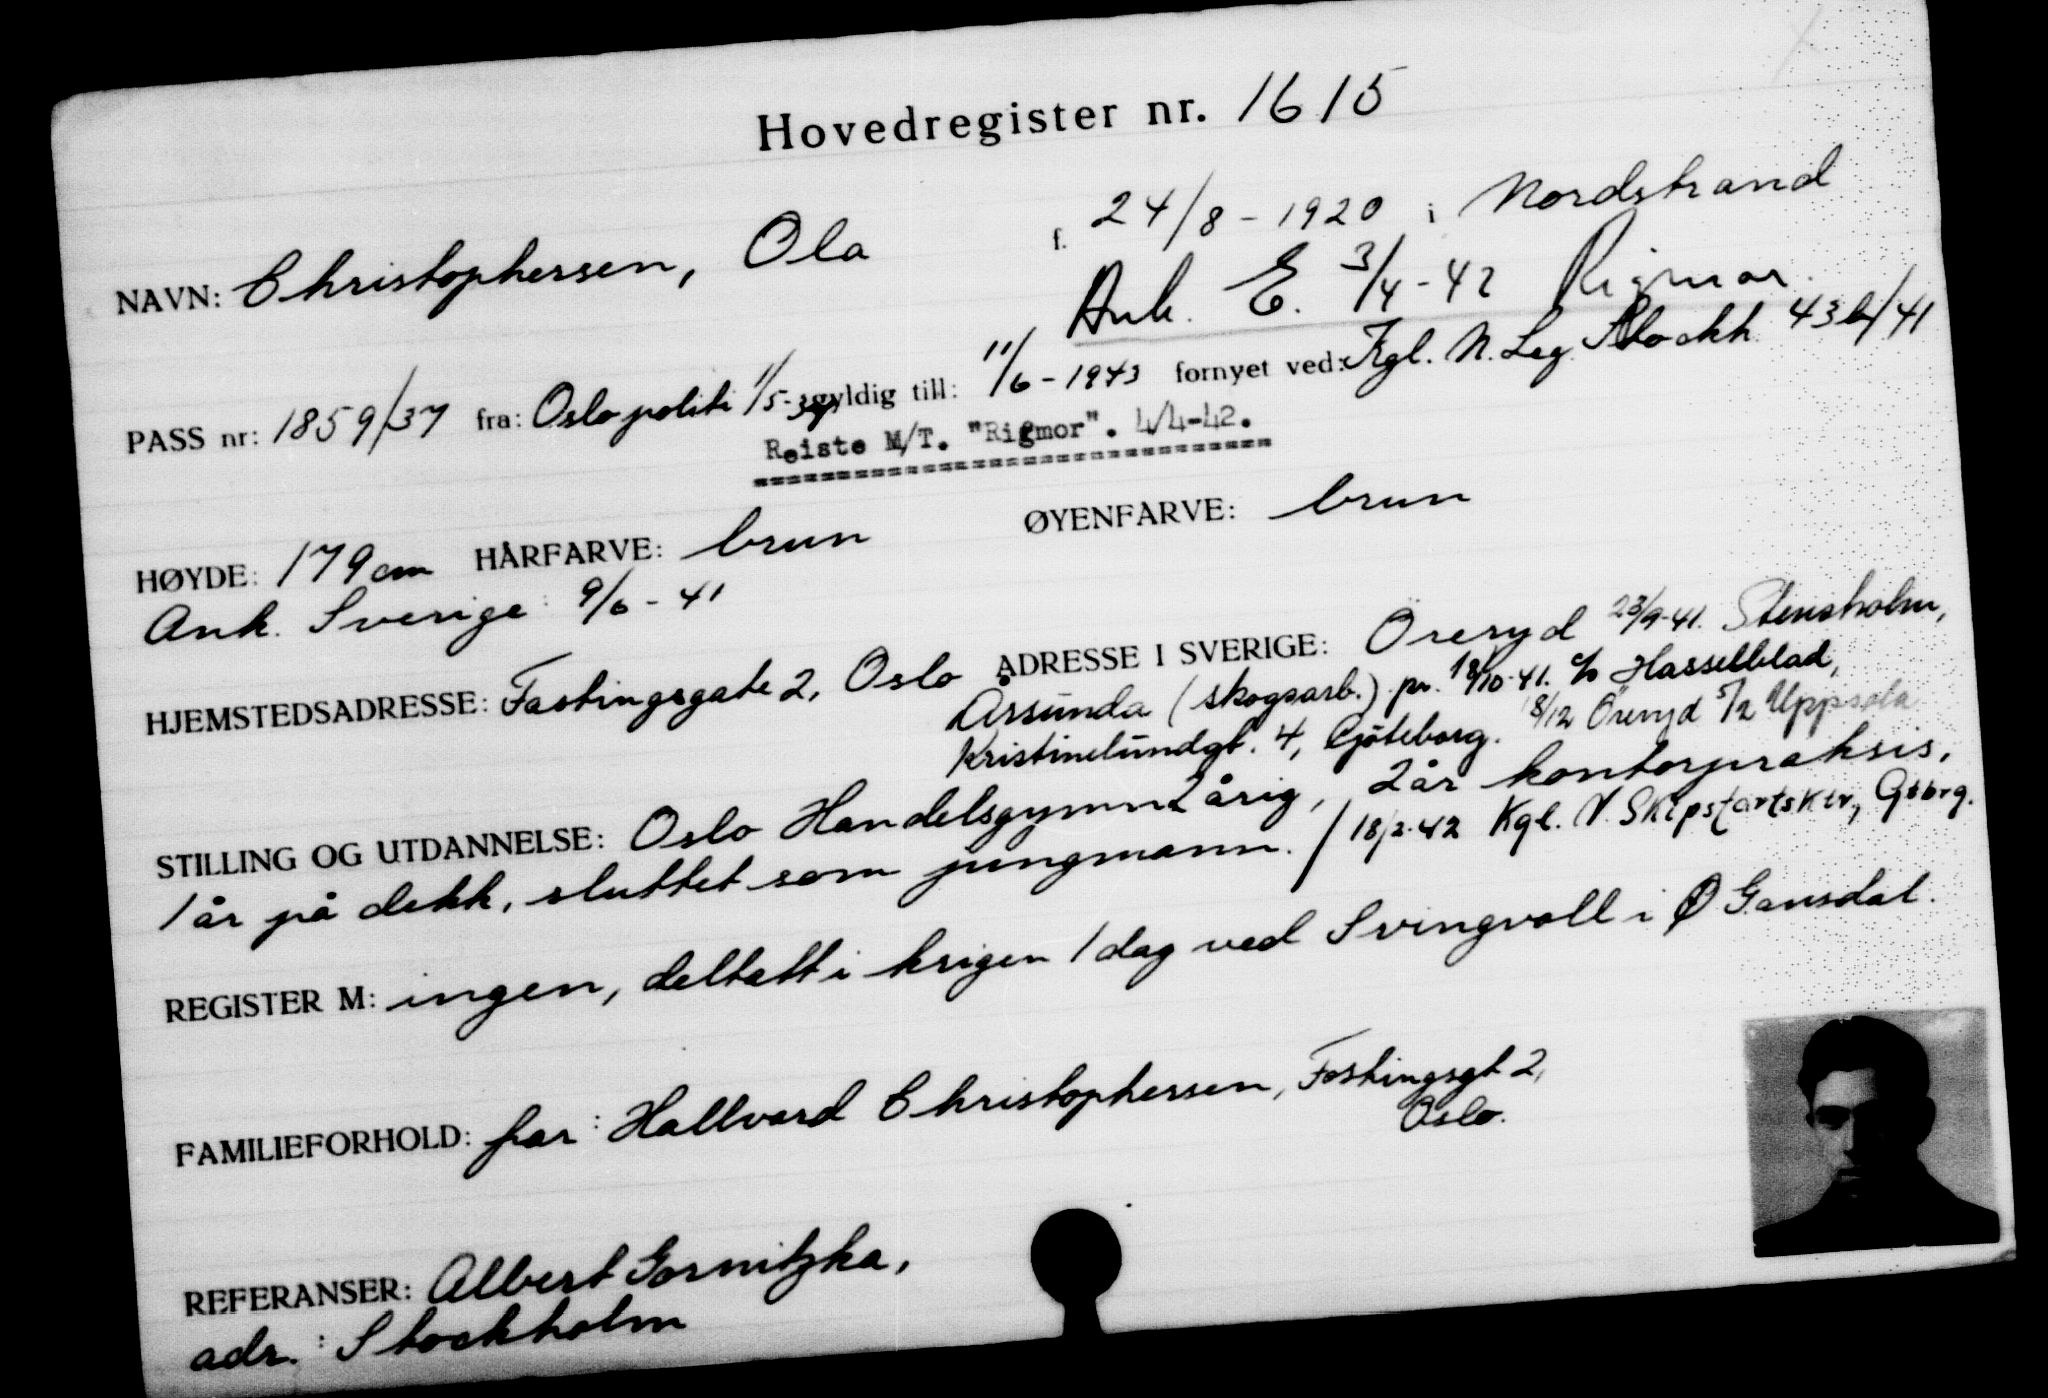 Hovedregister nr. 1615
NAVN: Christophersen, Ola f. 24/8 - 1920 i Nordstrand
Ank. E. 3/4-42 Rigmor.
PASS nr: 1859/37 fra: Oslo politi 1/5-37 gyldig till: 11/6 - 1943 fornyet ved: Kgl. N. Leg. Stockh. 43b/41
Reiste M/T. "Rigmor". 4/4-42.
HØYDE: 179 cm HÅRFARVE: brun ØYENFARVE: brun
Ank. Sverige: 9/6 - 41
HJEMSTEDSADRESSE: Fastingsgate 2, Oslo ADRESSE I SVERIGE: Öreryd 23/9-41. Stensholm,
Årsunda (skogsarb.) pr. 18/10-41. c/o Hasselblad,
Kristinelundgt. 4, Gjöteborg. 8/12 Öreryd 5/2 Uppsala
STILLING OG UTDANNELSE: Oslo Handelsgymn 2årig, 2år kontorpraksis,
1 år på dekk, sluttet som jungmann. / 18/2-42 Kgl. N. Skipsfartsktr, Gtbrg.
REGISTER M: ingen, deltatt i krigen 1 dag ved Svingvoll i Ø Gausdal.
FAMILIEFORHOLD: far: Hallvard Christophersen, Fastingsgt 2,
Oslo.
REFERANSER: Albert Gornitzka,
adr.: Stockholm